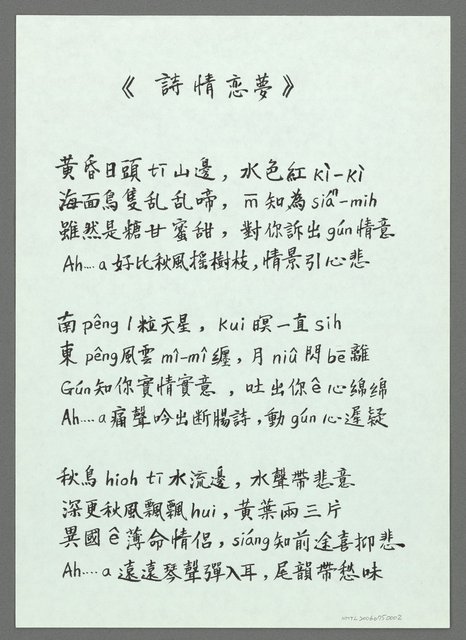 《詩情恋夢》
黃昏日頭 tī 山邊，水色紅 kì-kì
海面鳥隻乱乱啼，m̄ 知為 siáⁿ-mih
雖然是糖甘蜜甜，對你訴出 gún 情意
Ah....a 好比秋風搖樹枝，情景引心悲
南 pêng 1 粒天星，kui 暝一直 sih
東 pêng 風雲 mî-mî 纏，月 niû 閃 bē 離
Gún 知你實情實意，吐出你 ê 心綿綿
Ah....a 痛聲吟出斷腸詩，動 gún 心遲疑
秋鳥 hioh tī 水流邊，水聲帶悲意
深更秋風飄飄 hui，黃葉兩三片
異國 ê 薄命情侶，siáng 知前途喜抑悲
Ah....a 遠遠琴聲彈入耳，尾韻帶愁味
NMTL20066750002